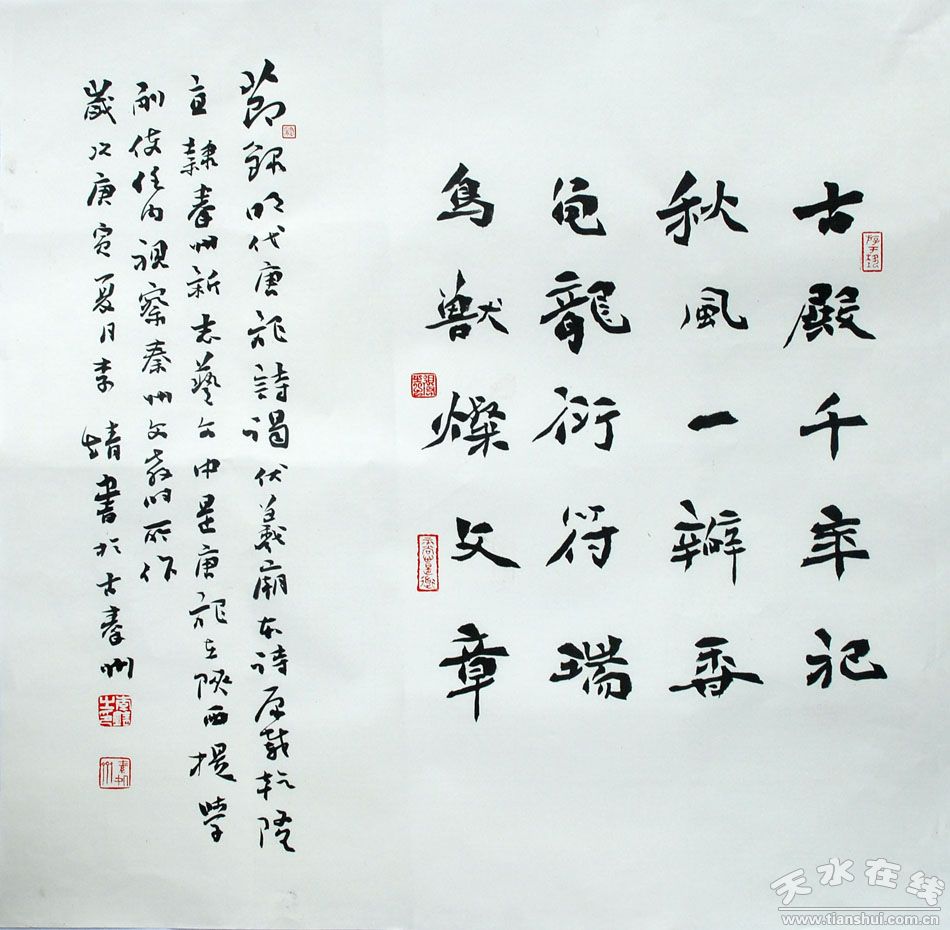 古殿千年祀
秋風一瓣香
龟龍衍符瑞
鳥獸燦文章
節錄明代唐龍詩謁伏羲廟本詩原載乾隆
直隸秦州新志藝文中是唐龍在陝西提學
副使任内視察秦州文教時所作
歲次庚寅夏月李靖書於古秦州
天水在线
www.tianshui.com.cn